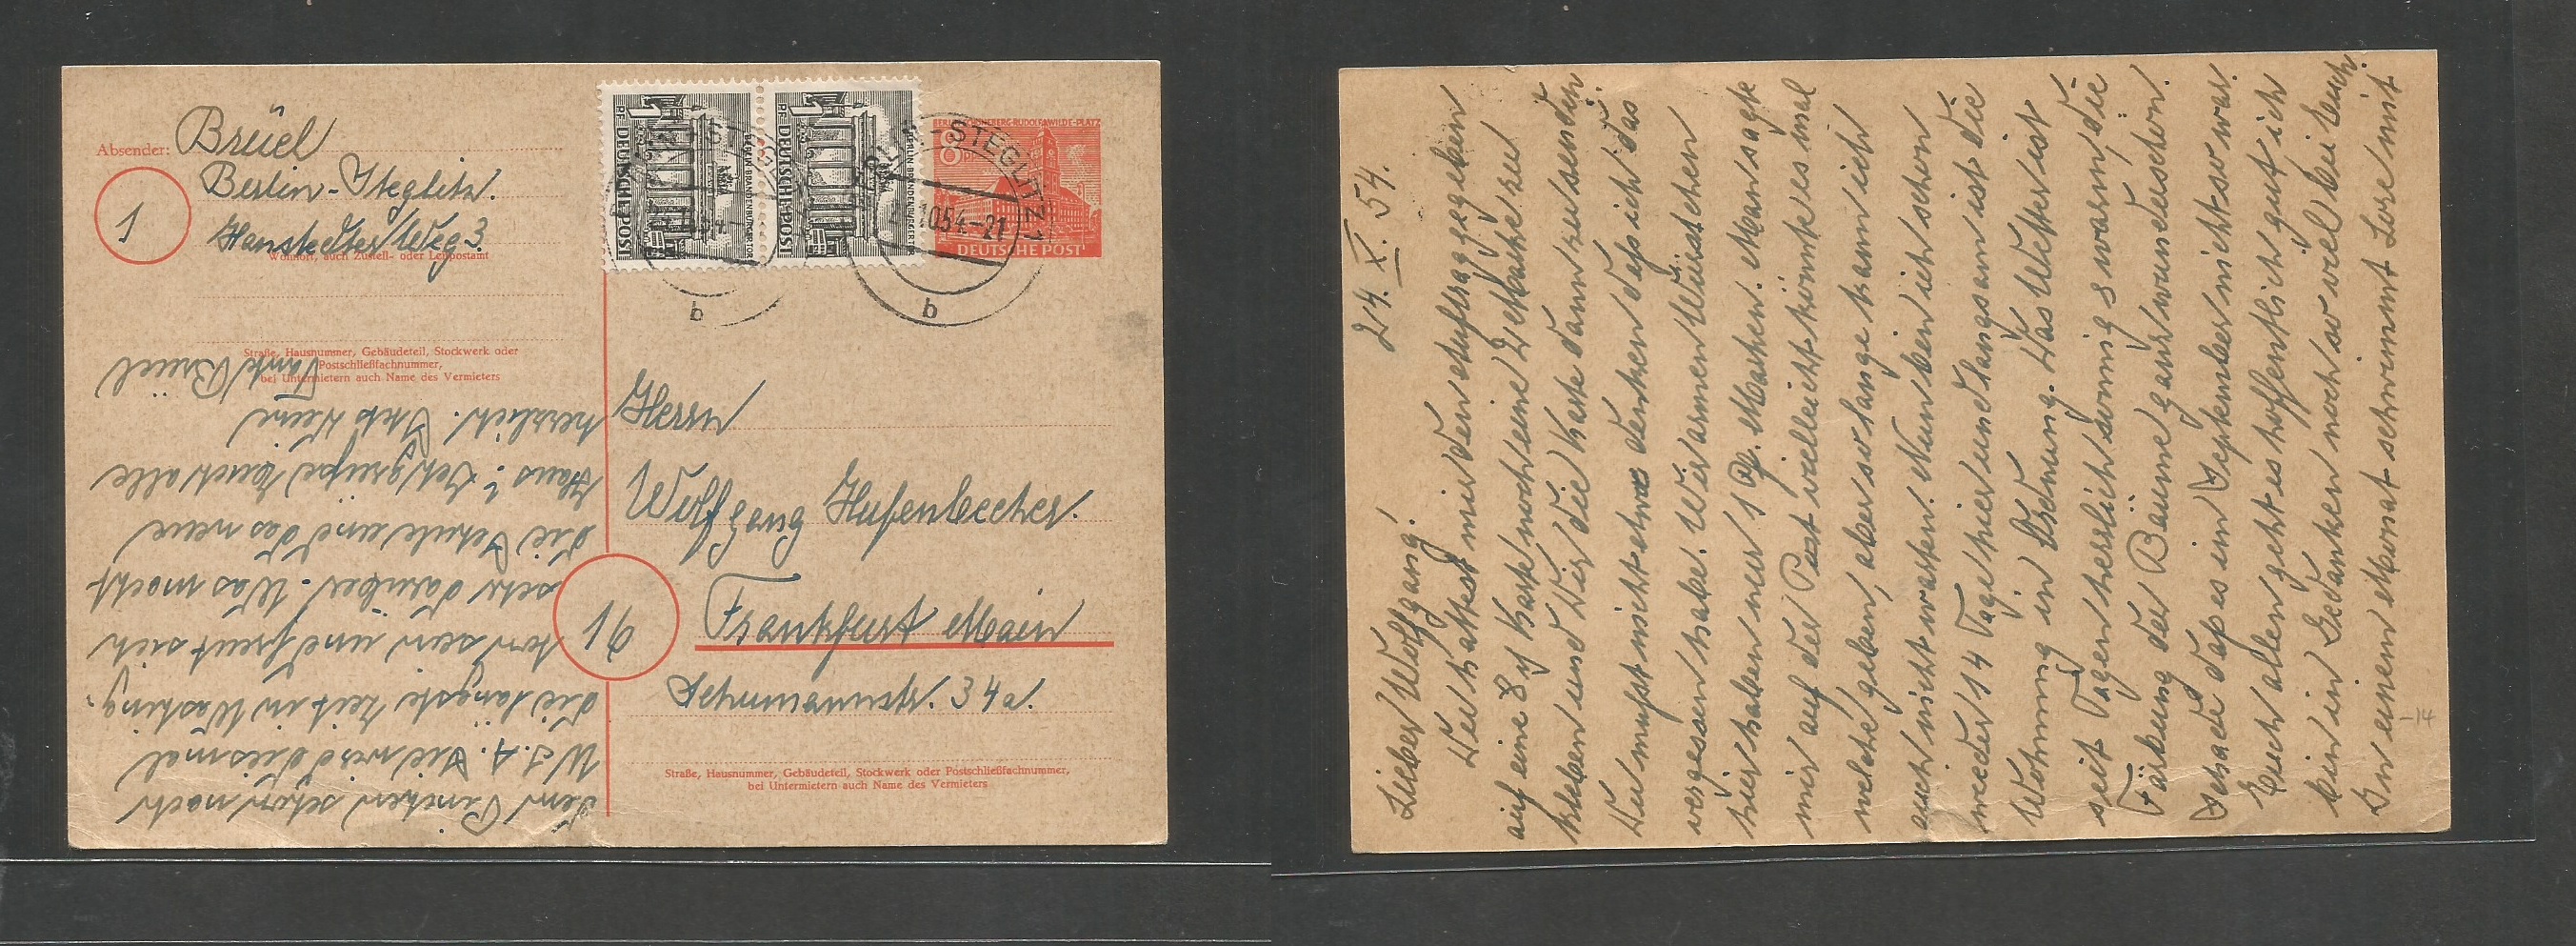 Absender: Brüel
Berlin-Steglitz.
1
Hanstedter Weg 3.
Wohnort, auch Zustell- oder Leitpostamt
Straße, Hausnummer, Gebäudeteil, Stockwerk oder
Postschließfachnummer,
bei Untermietern auch Name des Vermieters
DEUTSCHE POST
BERLIN BRANDENBURGER TOR
DEUTSCHE POST
BERLIN BRANDENBURGER TOR
BERLIN SCHÖNEBERG-RUDOLF-WILDE-PLATZ
8
DEUTSCHE POST
BERLIN-STEGLITZ 1
1054.-21
b
b
Herrn
Wolfgang Hufenbecher.
16
Frankfurt Main
Schumannstr. 34a.
Straße, Hausnummer, Gebäudeteil, Stockwerk oder Postschließfachnummer,
bei Untermietern auch Name des Vermieters
24. X. 54.
Lieber Wolfgang!
Du hattest mir den Auftrag gegeben
auf eine 8 Karte noch eine Marke zu
kleben und Dir die Karte dann zu senden.
Du mußt nicht etwa denken daß ich das
vergessen habe. Wir armen Würstchen
hier haben nur 1 Marken. Man sagte
mir auf der Post vielleicht könnte es mal
welche geben, aber so lange kann ich
auch nicht warten. Nun bin ich schon
wieder 14 Tage hier und langsam ist die
Wohnung in Ordnung. Das Wetter ist
seit Tagen herrlich sonnig warm, die
Färbung der Bäume ganz wunderschön.
Schade daß es im September nicht so war.
Euch allen geht es hoffentlich gut ich
bin in Gedanken noch so viel bei Euch.
In einem Monat schwimmt Lore mit
-14
dem schon nach
U.S.A. Sie wird diesmal
die längste Zeit in Washing-
ton sein und freut sich
sehr darüber. Was macht
die Schule und das neue
Haus? Ich grüße Euch alle
herzlich. Deine
Tante Brüel